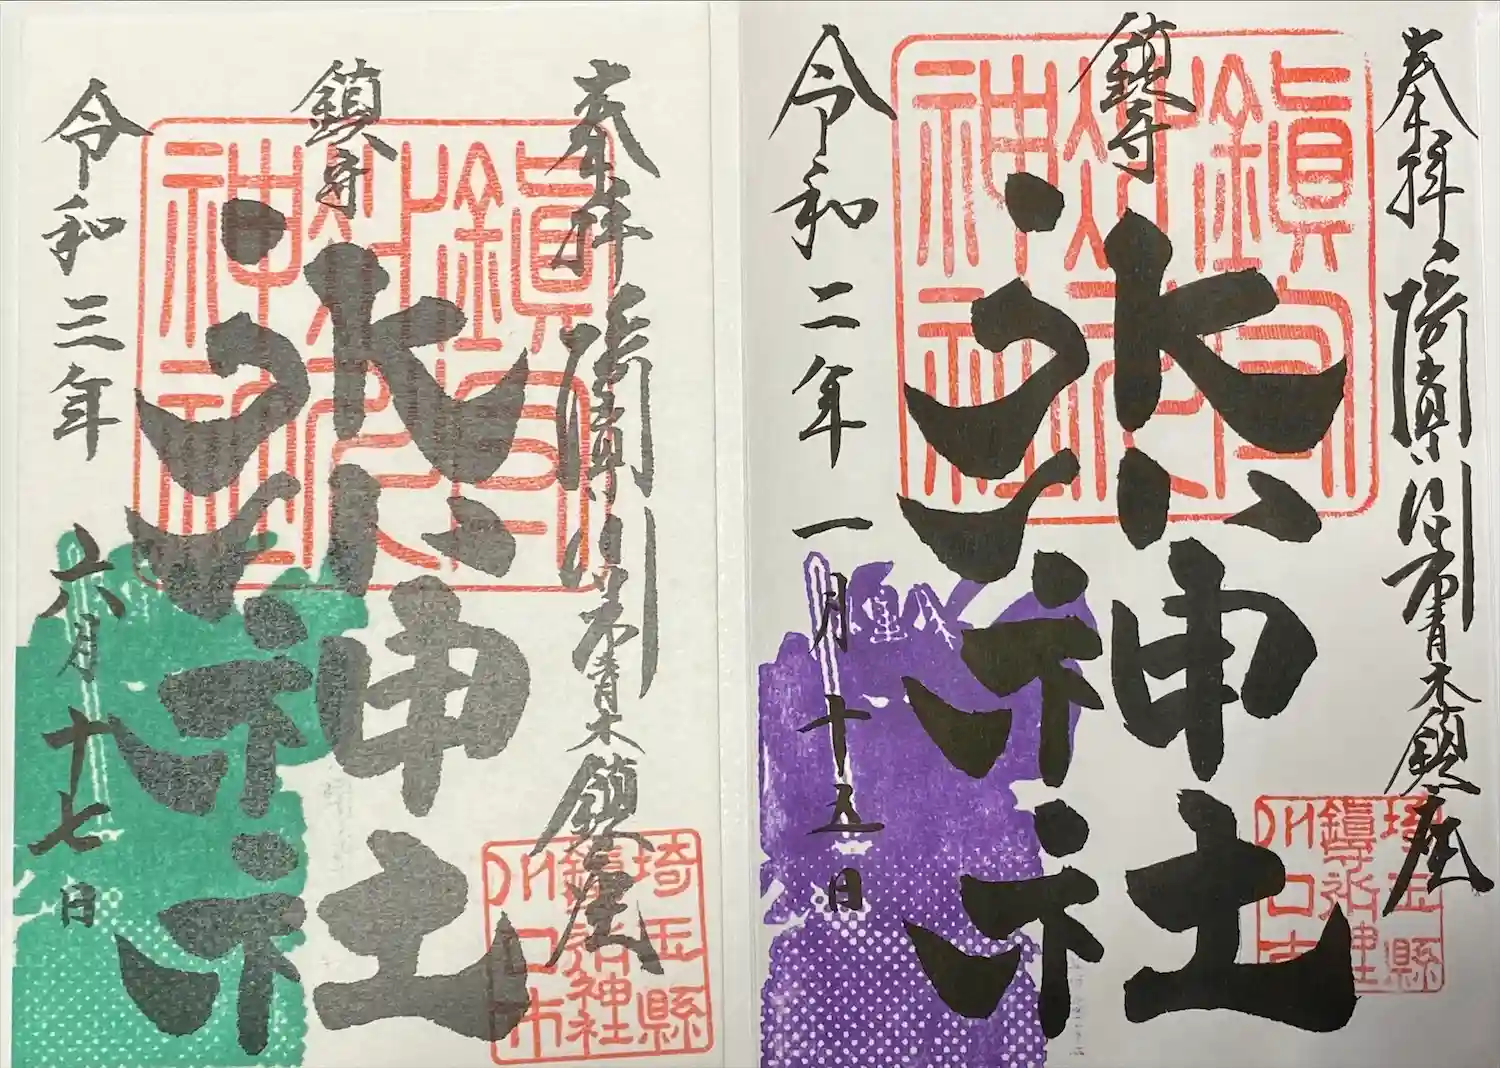 奉拝 青木鎮座
鎮守
氷川神社
令和二年一月十五日
鎭守
氷川
神社
埼玉縣
鎭守氷川神社
川口市
奉拝 青木鎮座
鎮守
氷川神社
令和三年六月十七日
鎭守
氷川
神社
埼玉縣
鎭守氷川神社
川口市